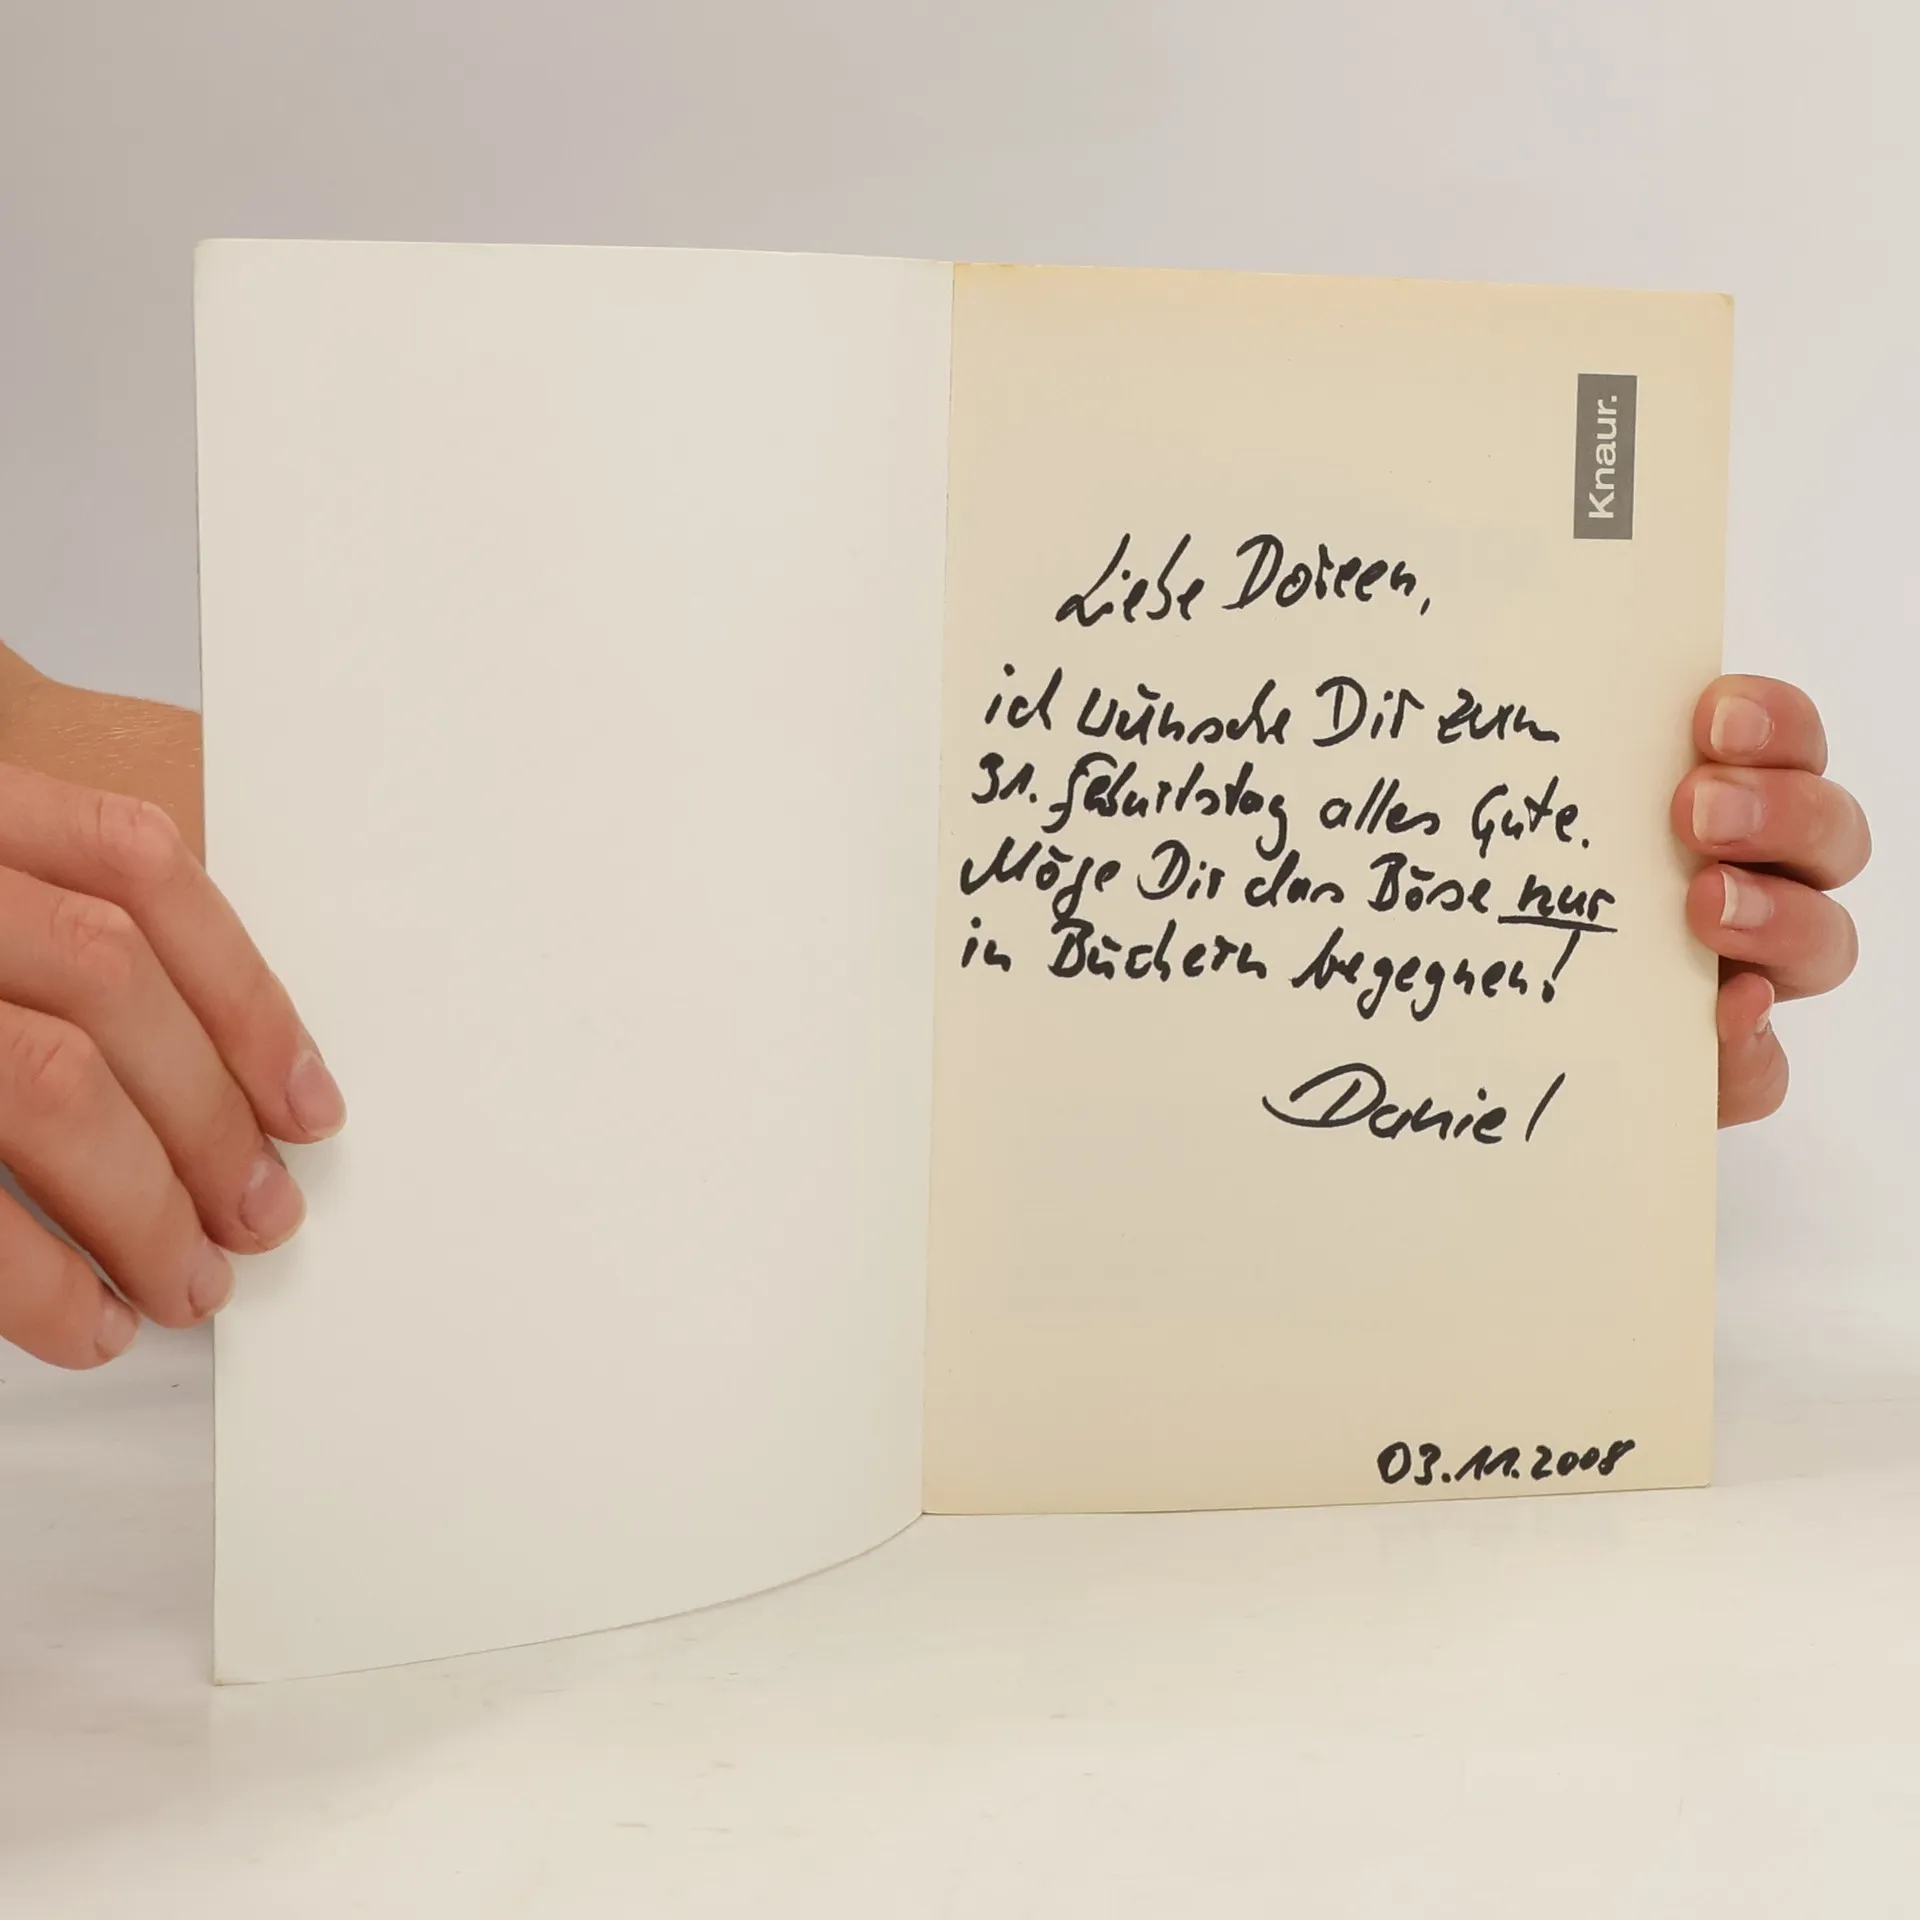 Knaur.
Liebe Doreen,
ich wünsche Dir zum
31. Geburtstag alles Gute.
Möge Dir das Böse nur
in Büchern begegnen!
Daniel
03.11.2008